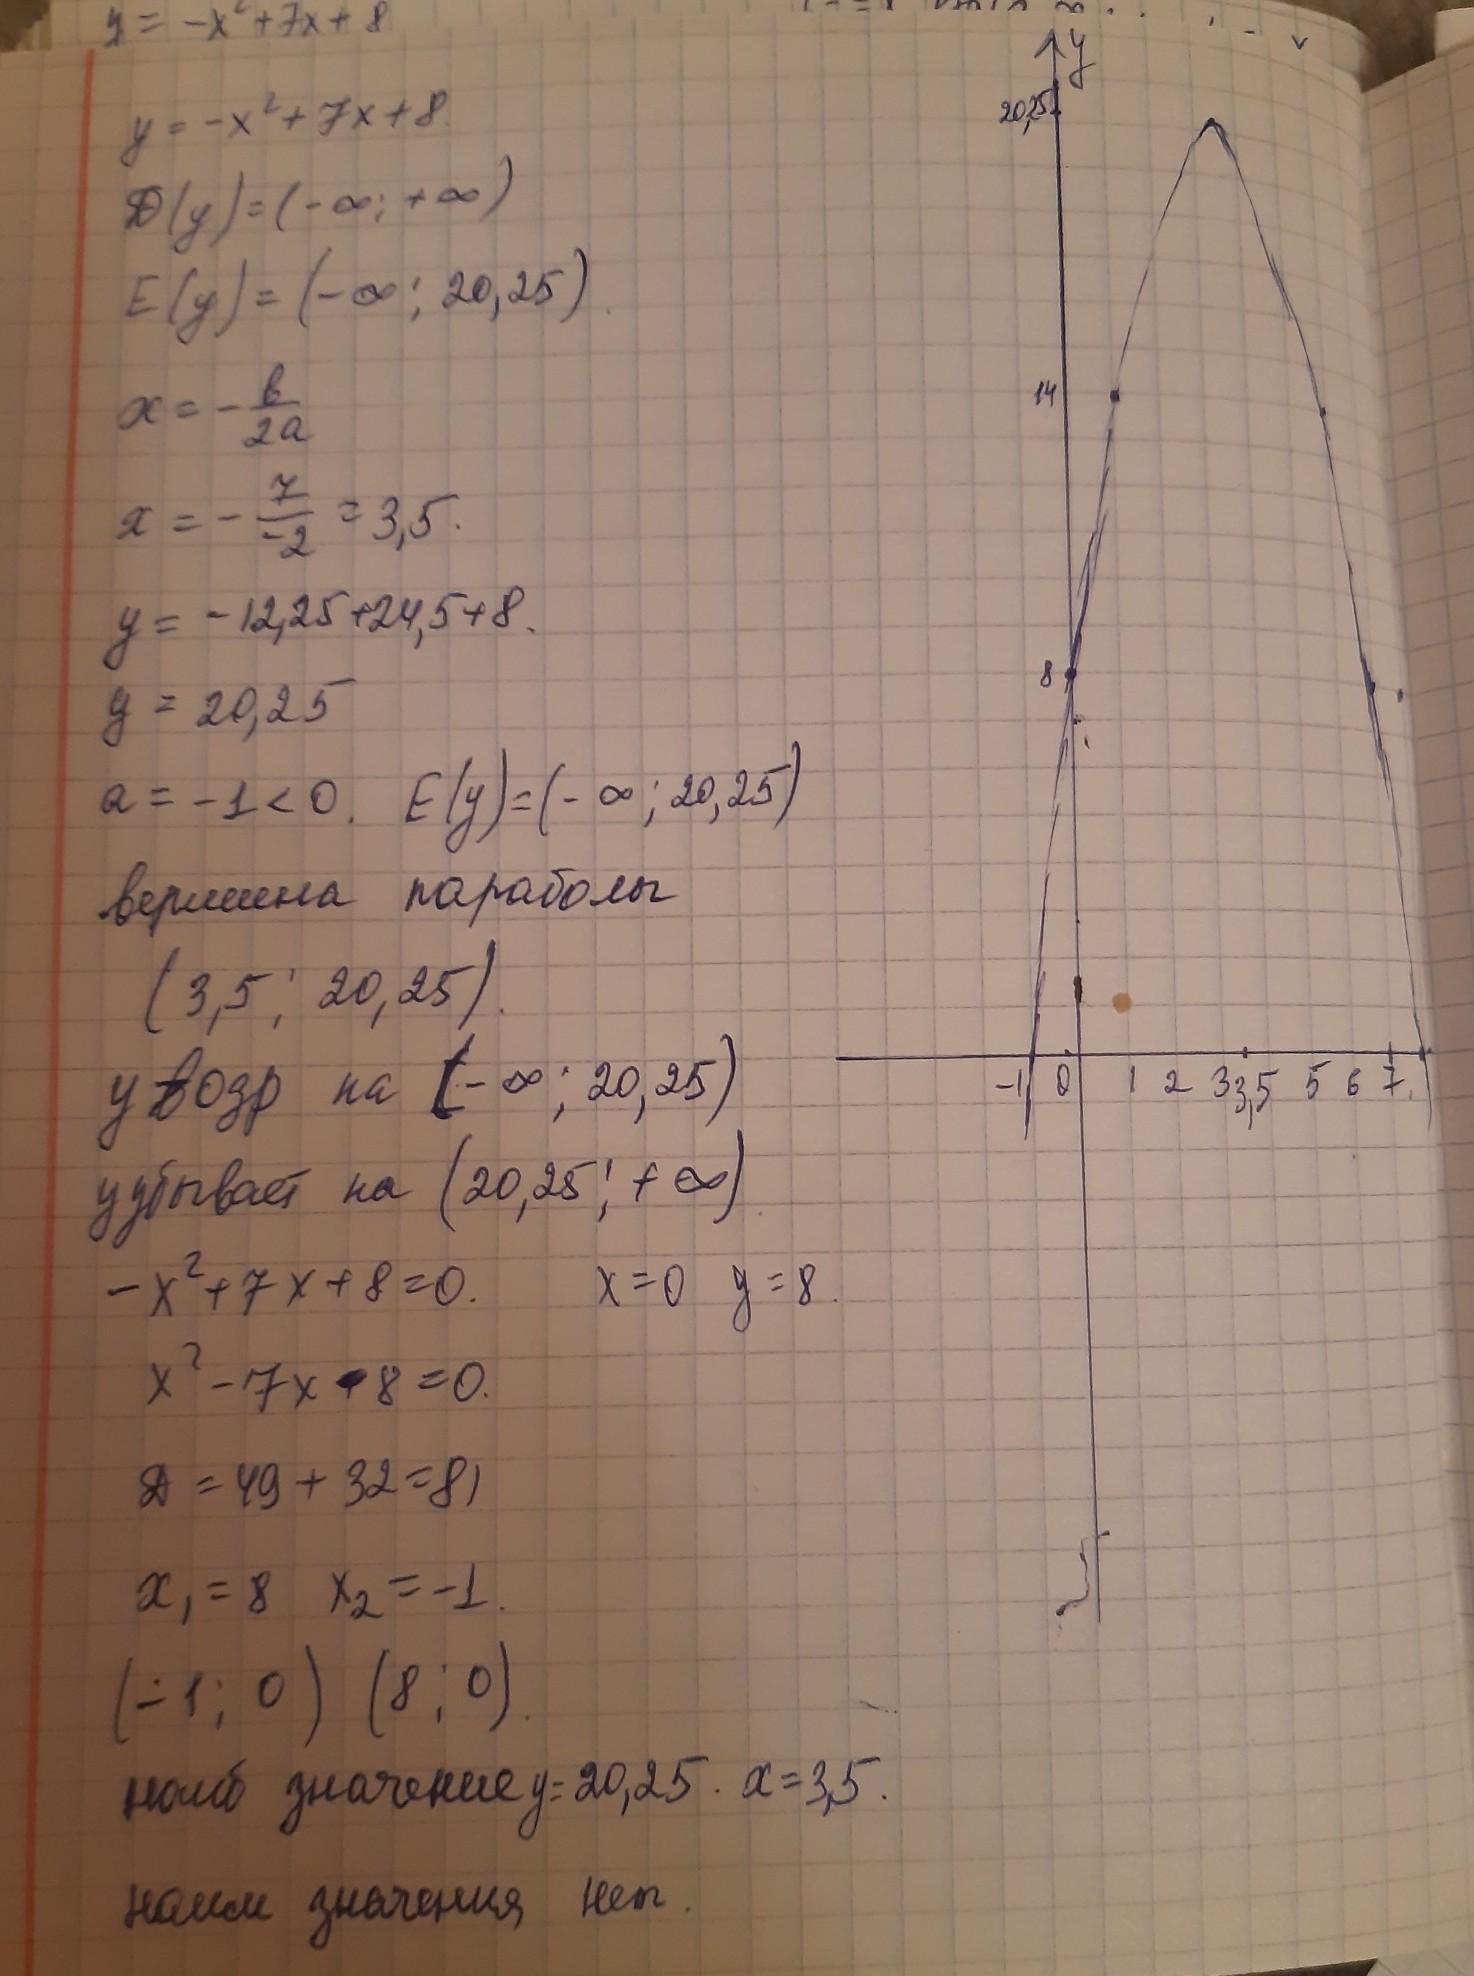 y = -x² + 7x + 8
y = -x² + 7x + 8.
D(y) = (-∞; +∞)
E(y) = (-∞; 20,25).
x = - b/2a
x = - 7/-2 = 3,5.
y = -12,25 + 24,5 + 8.
y = 20,25
a = -1 < 0. E(y) = (-∞; 20,25)
вершина параболы
(3,5; 20,25).
y возр на (-∞; 20,25)
y убывает на (20,25; +∞).
-x² + 7x + 8 = 0. x = 0 y = 8.
x² - 7x - 8 = 0.
D = 49 + 32 = 81
x₁ = 8 x₂ = -1.
(-1; 0) (8; 0).
наиб значение y = 20,25. x = 3,5.
наим значения нет.
y
20,25
14
8
-1 0 1 2 3 3,5 5 6 7